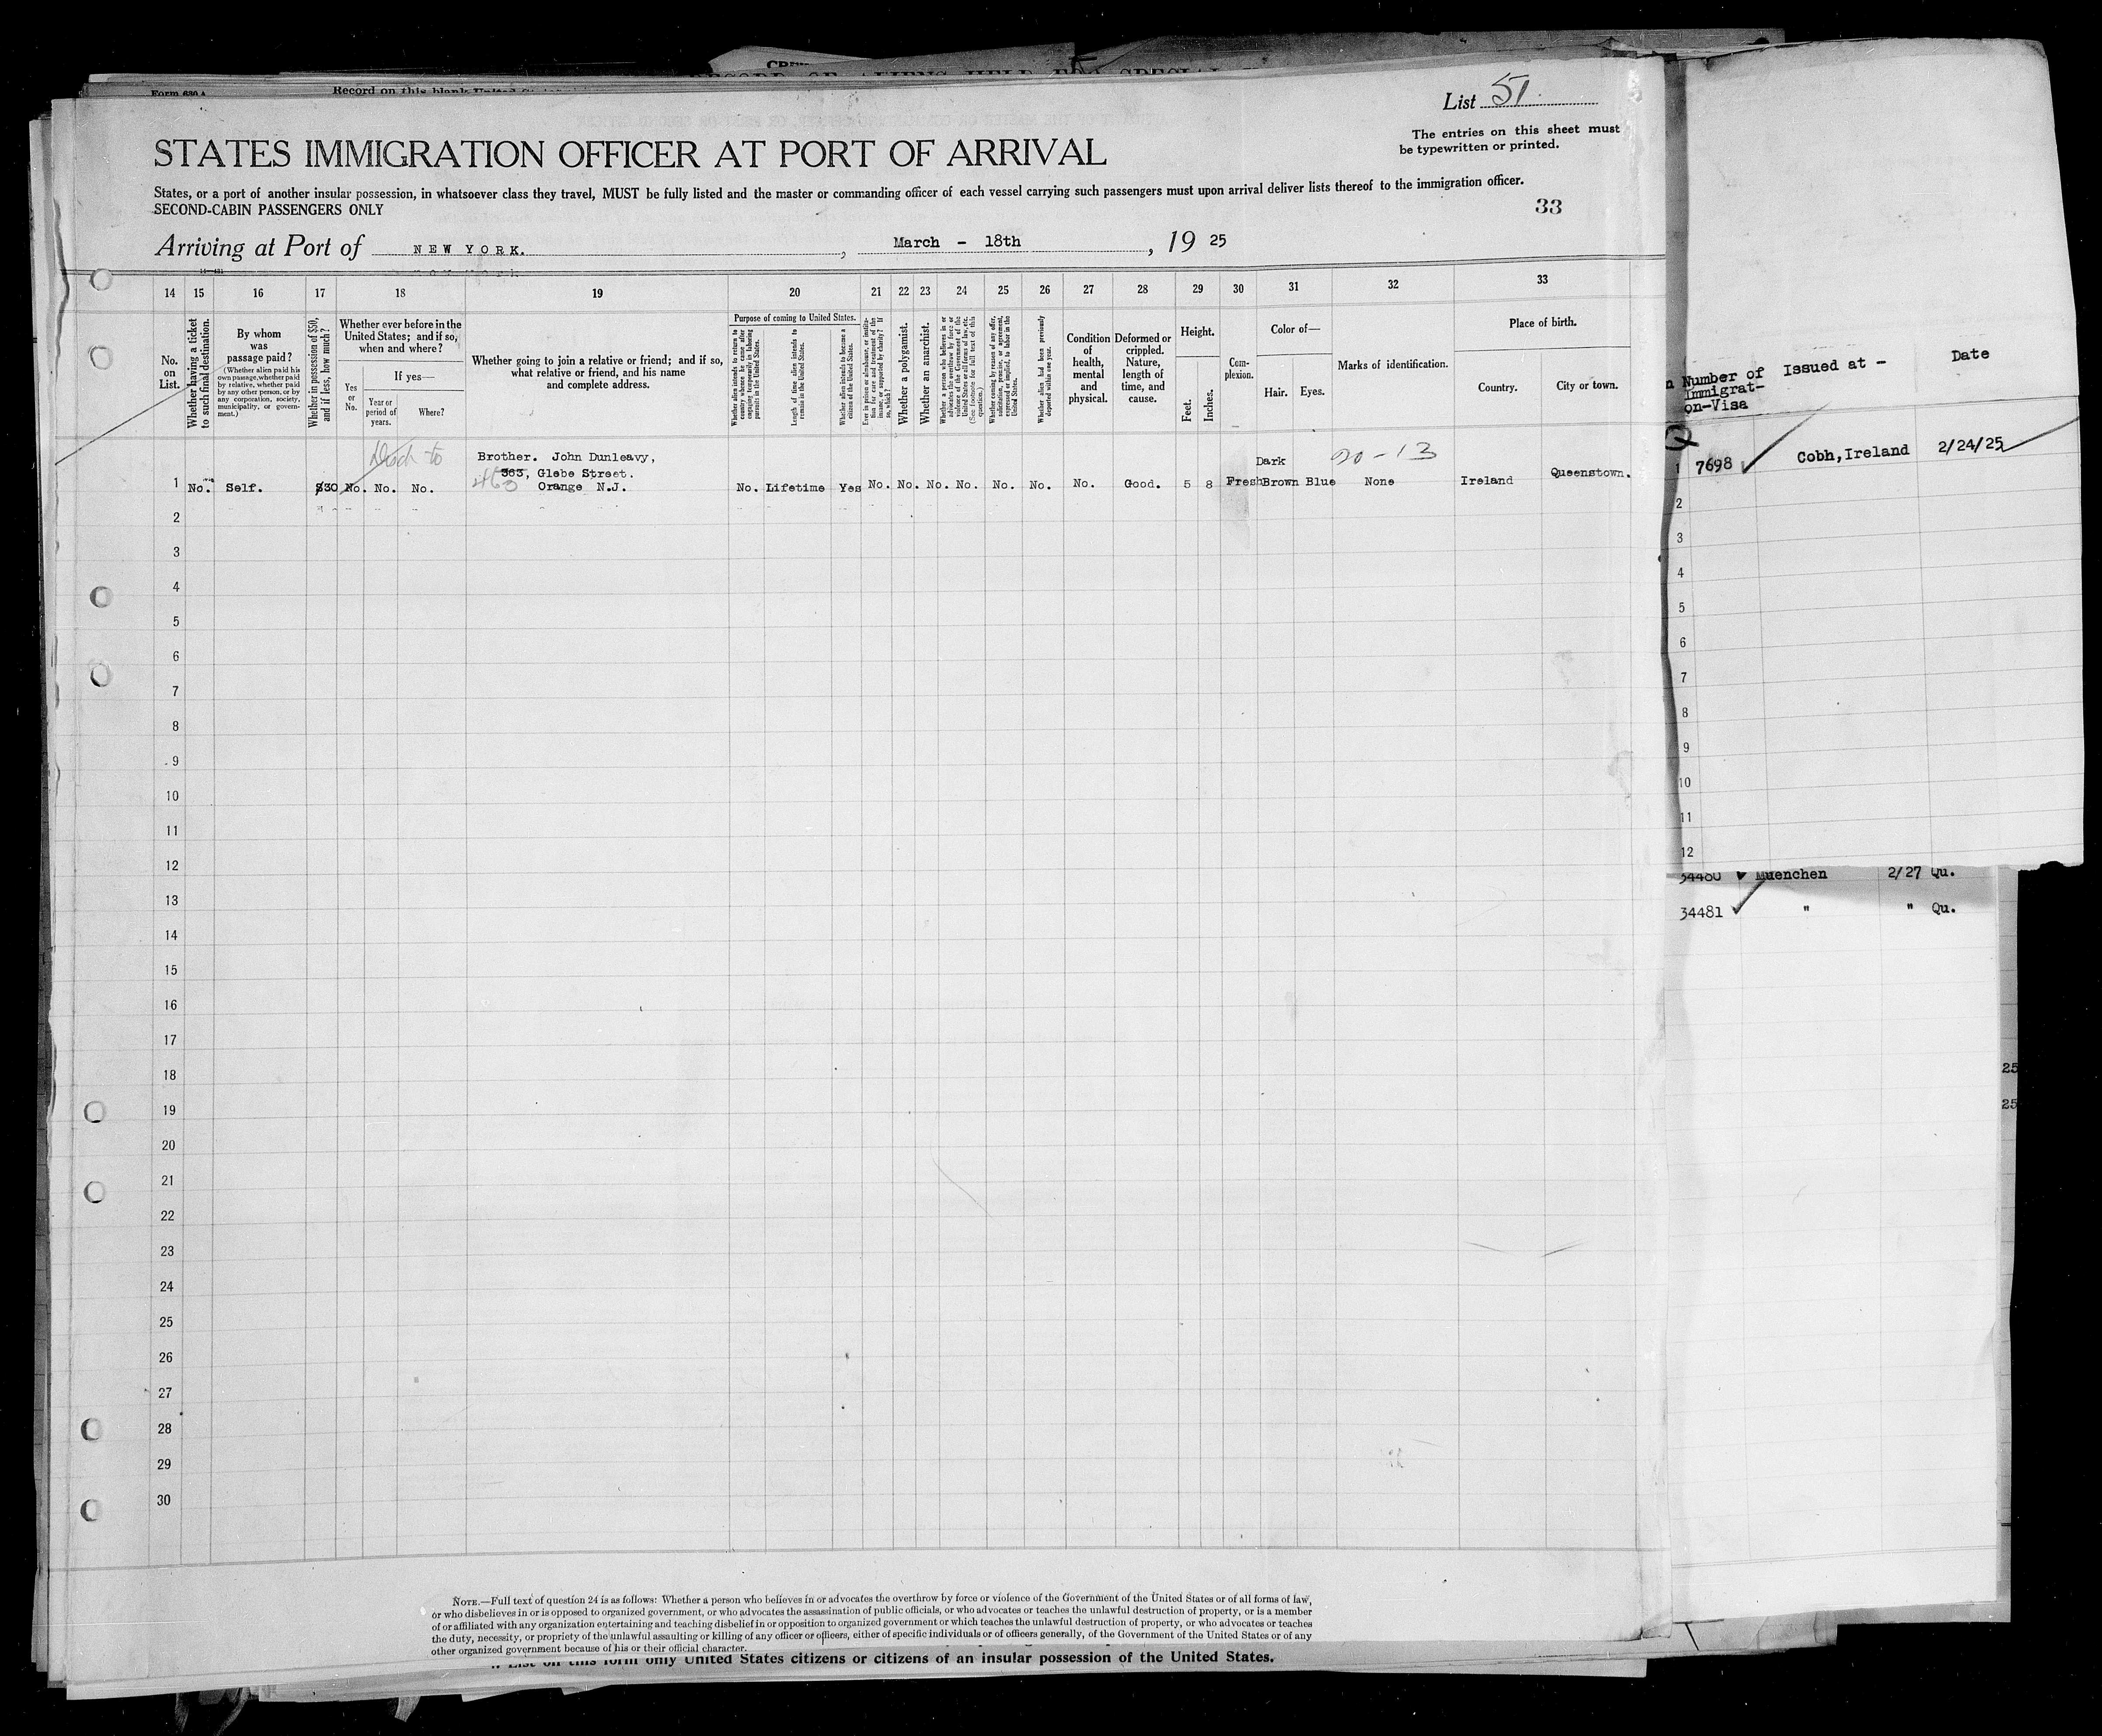 Form 630 A
Record on this blank United
List 51.
The entries on this sheet must
be typewritten or printed.
STATES IMMIGRATION OFFICER AT PORT OF ARRIVAL
States, or a port of another insular possession, in whatsoever class they travel, MUST be fully listed and the master or commanding officer of each vessel carrying such passengers must upon arrival deliver lists thereof to the immigration officer.
SECOND-CABIN PASSENGERS ONLY
33
Arriving at Port of NEW YORK. , March - 18th , 19 25
14 15 16 17 18 19 20 21 22 23 24 25 26 27 28 29 30 31 32 33
No. on List.
Whether having a ticket to such final destination.
By whom was passage paid?
(Whether alien paid his own passage, whether paid by relative, whether paid by any other person, or by any corporation, society, municipality, or government.)
Whether in possession of $50, and if less, how much?
Whether ever before in the United States; and if so, when and where?
Yes or No.
If yes—
Year or period of years.
Where?
Whether going to join a relative or friend; and if so, what relative or friend, and his name and complete address.
Purpose of coming to United States.
Whether alien intends to return to country whence he came after engaging temporarily in laboring pursuits in the United States.
Length of time alien intends to remain in the United States.
Whether alien intends to become a citizen of the United States.
Ever in prison or almshouse, or institution for care and treatment of the insane, or supported by charity? If so, which?
Whether a polygamist.
Whether an anarchist.
Whether a person who believes in or advocates the overthrow by force or violence of the Government of the United States or all forms of law, etc. (See footnote for full text of this question.)
Whether coming by reason of any offer, solicitation, promise, or agreement, expressed or implied, to labor in the United States.
Whether alien had been previously deported within one year.
Condition of health, mental and physical.
Deformed or crippled. Nature, length of time, and cause.
Height.
Feet.
Inches.
Complexion.
Color of—
Hair. Eyes.
Marks of identification.
Place of birth.
Country. City or town.
Number of Immigration-Visa
Issued at -
Date
Brother. John Dunleavy,
363, Glebe Street.
463
Orange N.J.
20-13
1 No. Self. $30 No. No. No. No. Lifetime Yes No. No. No. No. No. No. No. Good. 5 8 Fresh Dark Brown Blue None Ireland Queenstown.
1 7698 Cobh, Ireland 2/24/25
2
3
4
5
6
7
8
9
10
11
12
13
14
15
16
17
18
19
20
21
22
23
24
25
26
27
28
29
30
2
3
4
5
6
7
8
9
10
11
12
34480 Muenchen 2/27 Qu.
34481 " " Qu.
25
25
NOTE.—Full text of question 24 is as follows: Whether a person who believes in or advocates the overthrow by force or violence of the Government of the United States or of all forms of law,
or who disbelieves in or is opposed to organized government, or who advocates the assassination of public officials, or who advocates or teaches the unlawful destruction of property, or is a member
of or affiliated with any organization entertaining and teaching disbelief in or opposition to organized government or which teaches the unlawful destruction of property, or who advocates or teaches
the duty, necessity, or propriety of the unlawful assaulting or killing of any officer or officers, either of specific individuals or of officers generally, of the Government of the United States or of any
other organized government because of his or their official character.
List on this form only United States citizens or citizens of an insular possession of the United States.